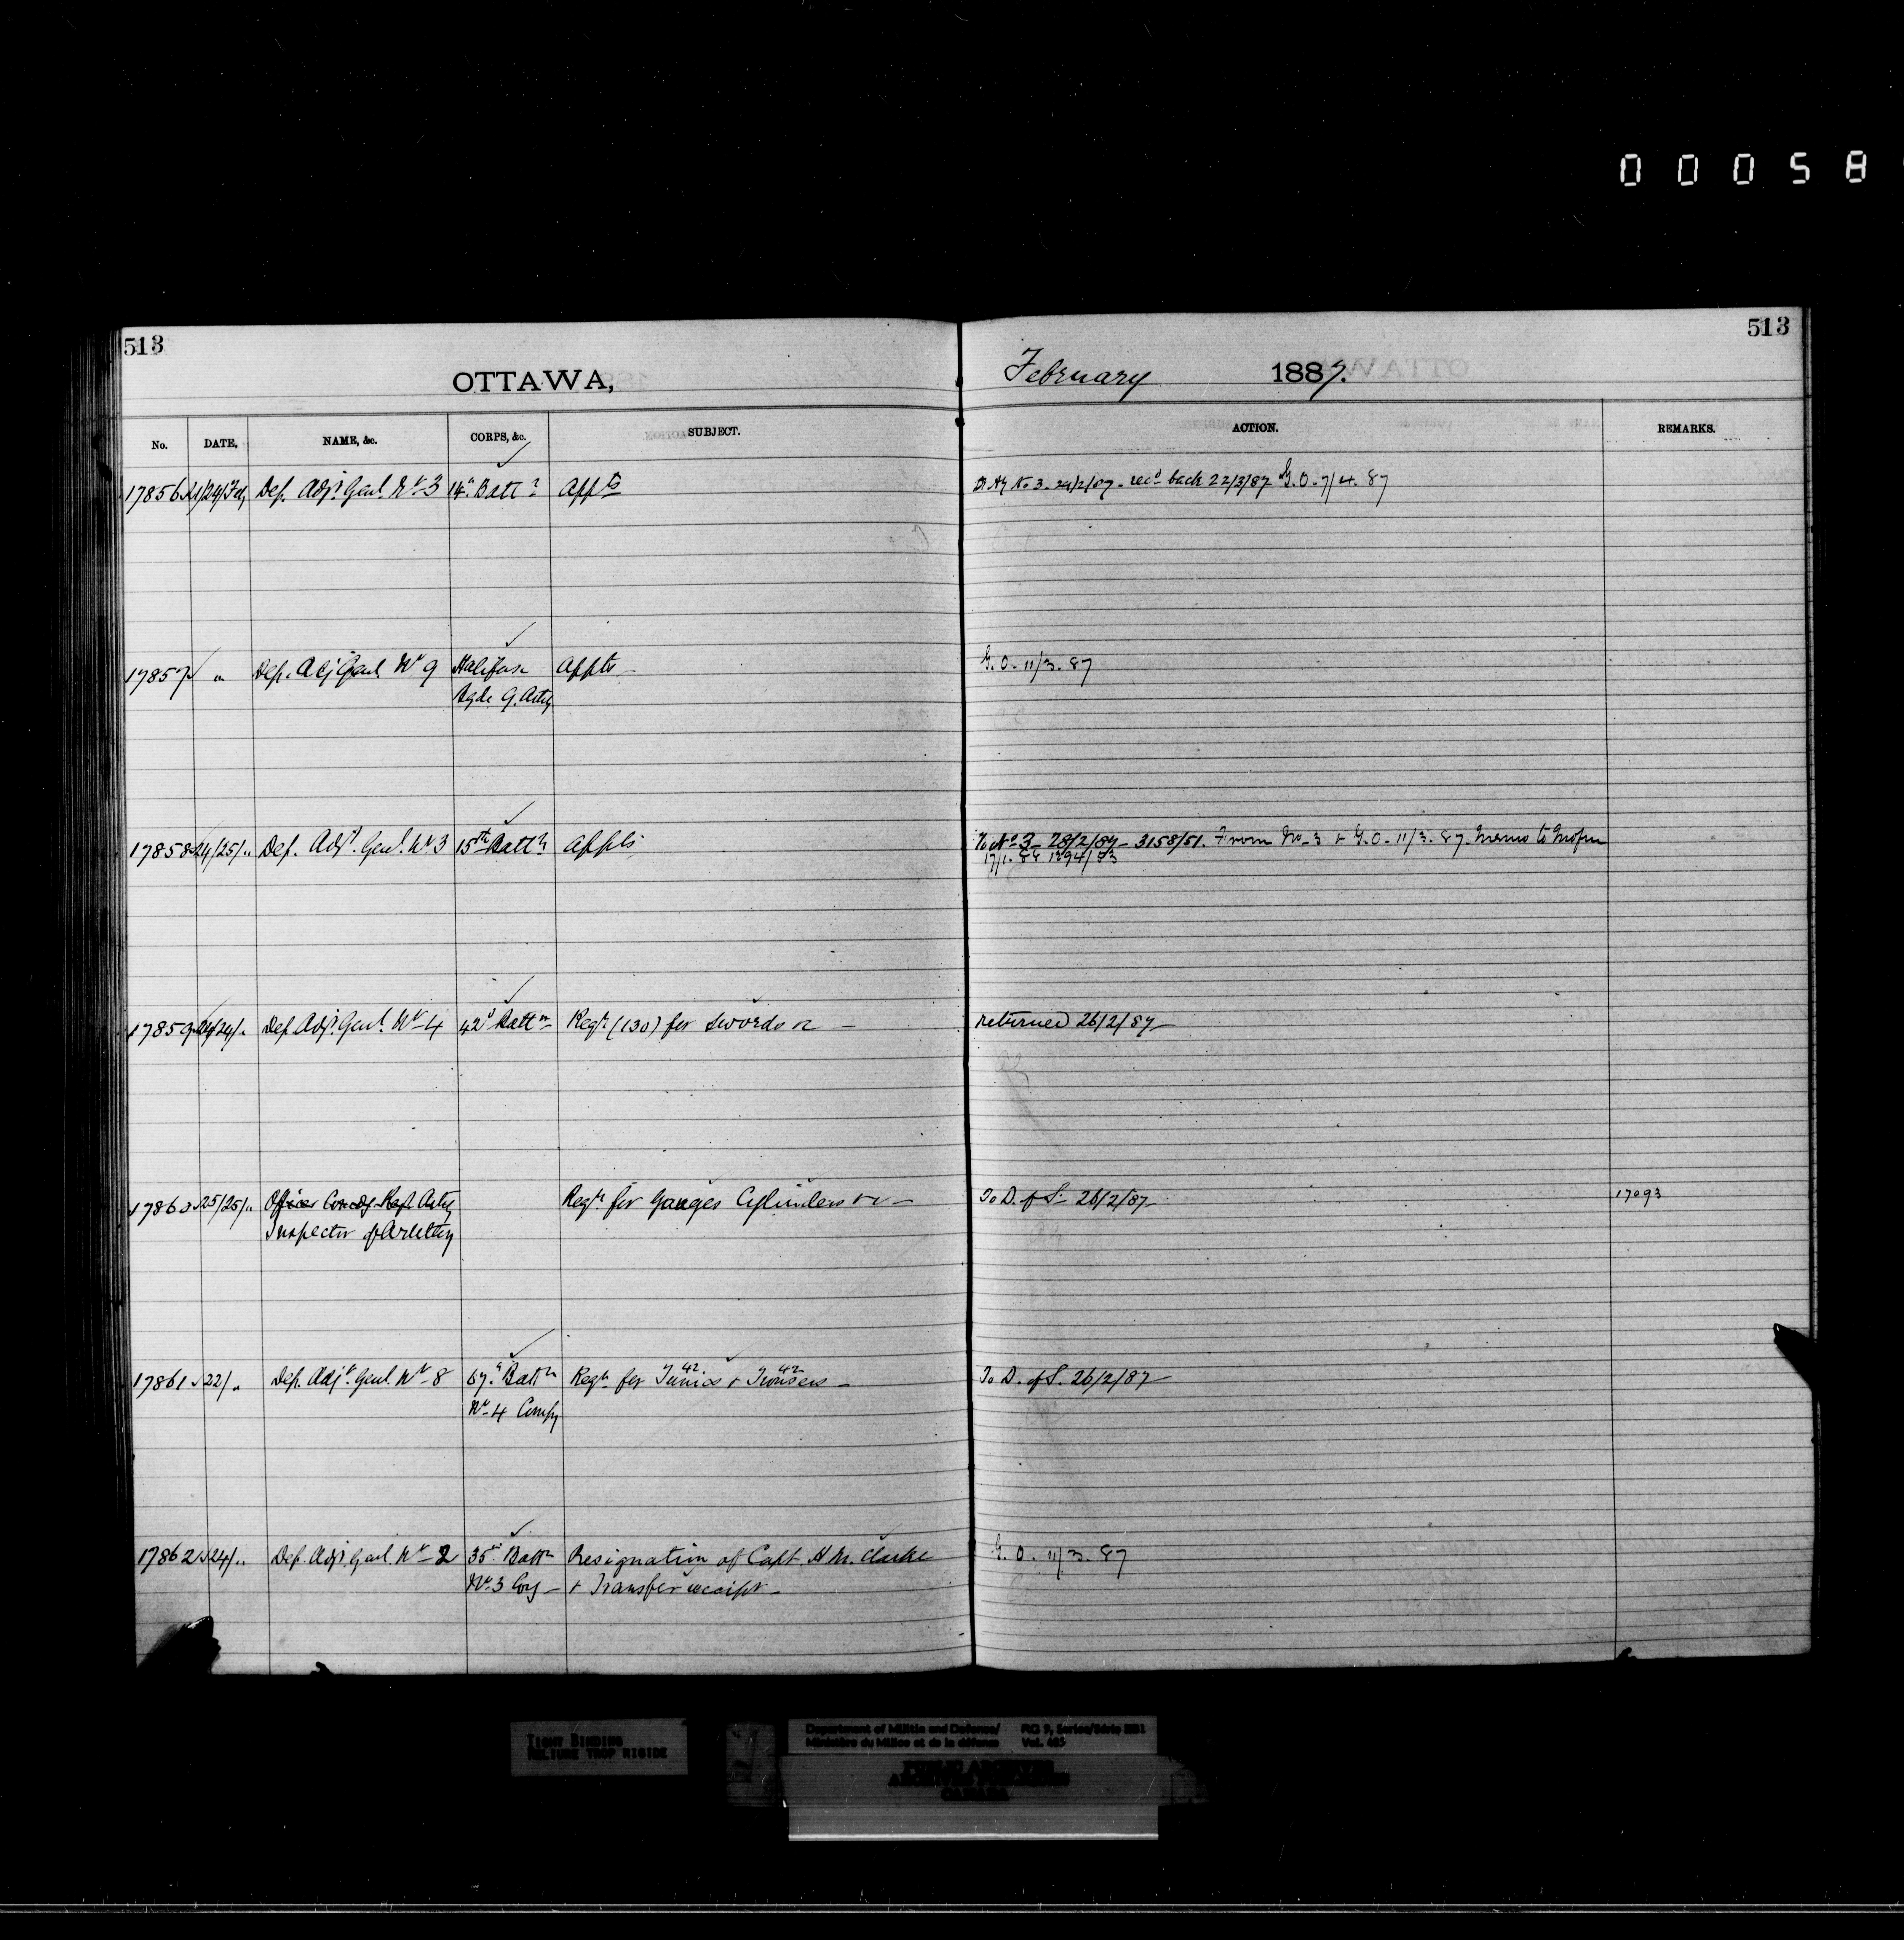 00058
513
513
OTTAWA,
February 1887.
No. DATE. NAME, &c. CORPS, &c. SUBJECT. ACTION. REMARKS.
17856 21/24/Feby Dep. Adjt. Genl. No 3 14th Battn Appts
No 3 - 24/2/87 - recd back 22/3/87 G.O. 7/4.87
17857 " Dep. Adj Genl No 9 Halifax Appts -
Bgde G. Arty
G.O. 11/3.87
17858 24/25/" Dep. Adjt. Genl. No 3 15th Battn Appts
To No 3 - 28/2/87 - 3158/51. From No 3 & G.O. 11/3.87. Memo to
17859 24/24/" Dep. Adjt. Genl. No 4 42d Battn Reqn (130) for Swords &c -
returned 26/2/87 -
17860 25/25/" Officer Comdg Regt Arty Reqn for Gauges Cylinders &c - To D. of S. - 26/2/87 - 17093
Inspector of Artillery
17861 22/" Dep. Adjt. Genl. No 8 67th Battn Reqn for 42 Tunics & 42 Trousers - To D. of S. 26/2/87 -
No 4 Compy
17862 24/" Dep. Adjt. Genl. No 2 35th Battn Resignation of Capt. H M. Clarke
No 3 Coy - & Transfer receipt -
G.O. 11/3.87
TIGHT BINDING
RELIURE TROP RIGIDE
Department of Militia and Defence/ RG 9, Series/Série IIB1
Ministère du Milice et de la défense Vol. 405
PUBLIC ARCHIVES
ARCHIVES PUBLIQUES
CANADA